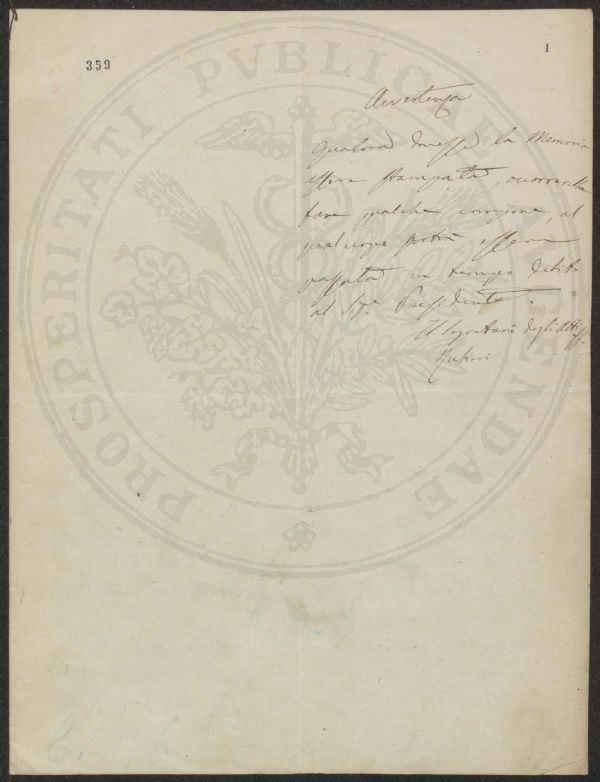 359
1
Avvertenza
Qualora dovesse la Memoria
essere stampata, occorrerebbe
fare qualche correzione, al
qual uopo potrà essere
passata in tempo debito
al Sig.r Presidente.
Il Segretario degli Atti
PROSPERITATI PVBLICAE AVGENDAE